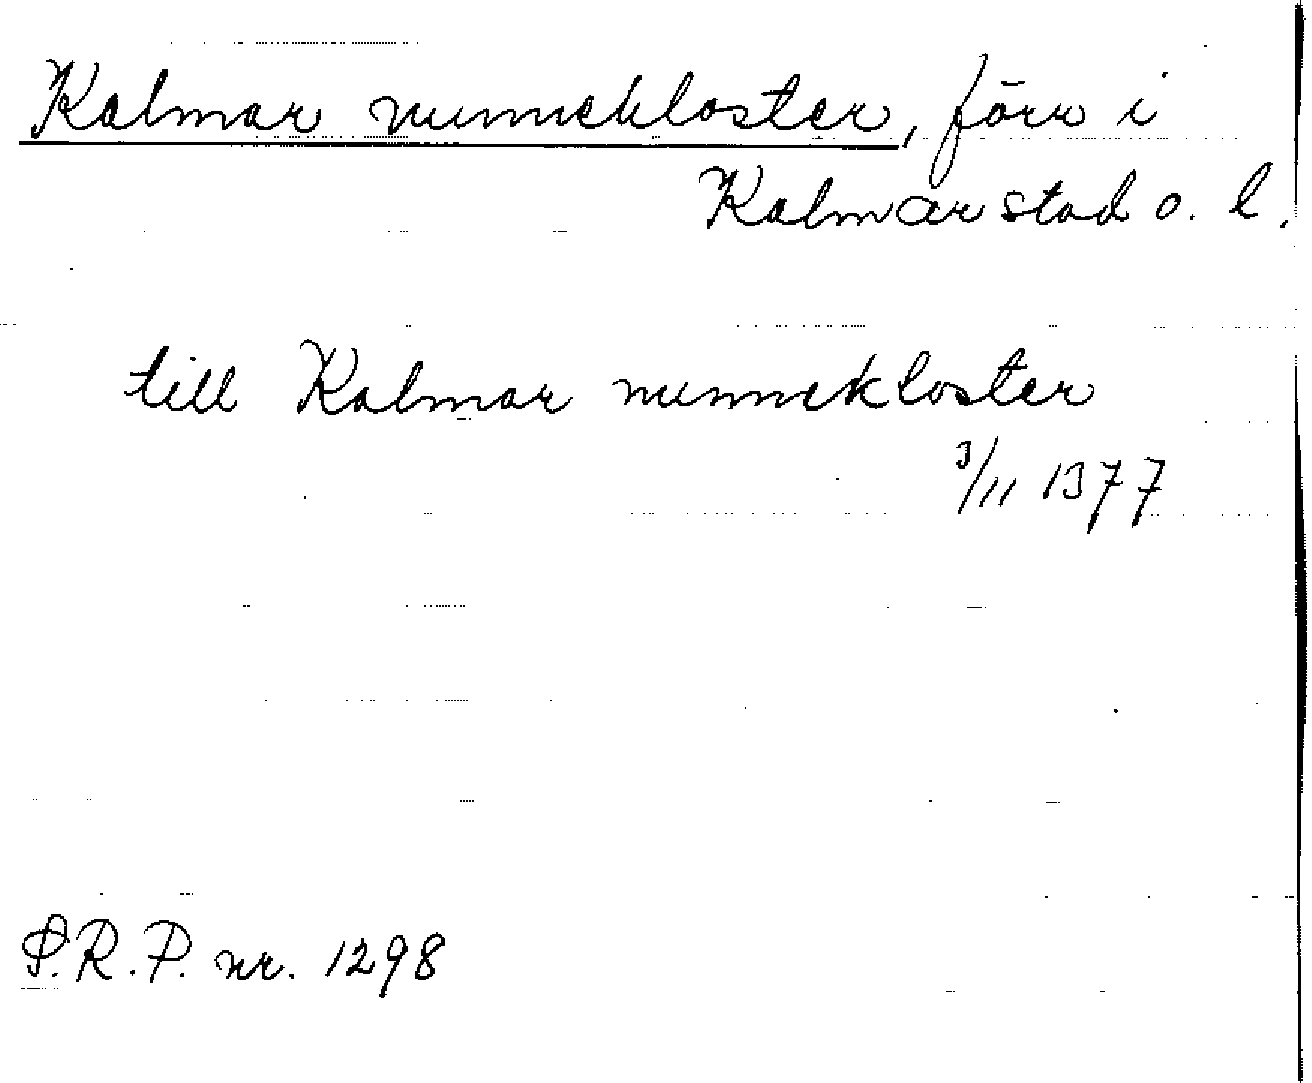 Kalmar nunnekloster, förr i
Kalmar stad o. l.
till Kalmar nunnekloster
3/11 1377
S.R.P. nr. 1298